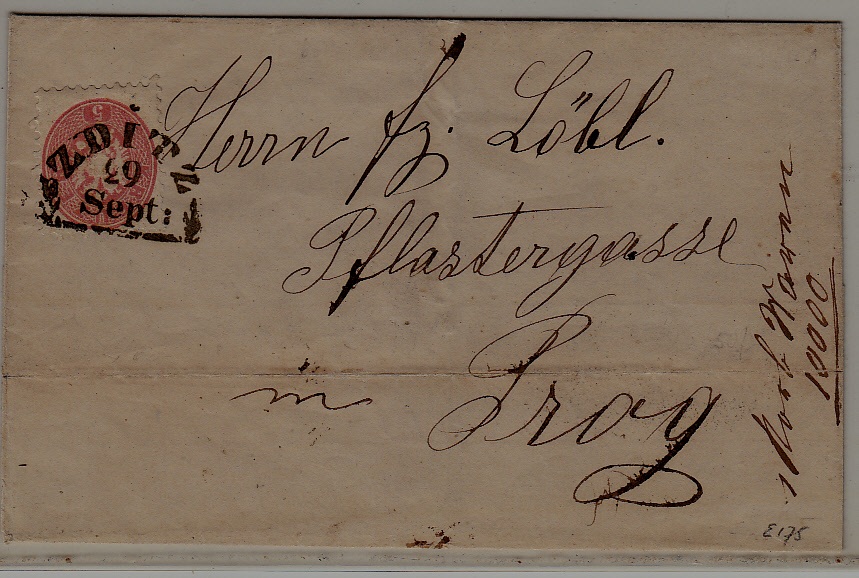 5
ZDITZ
29
Sept:
Herrn fz. Löbl.
Pflastergasse
in Prag
1 Korb Waren
10000
E175